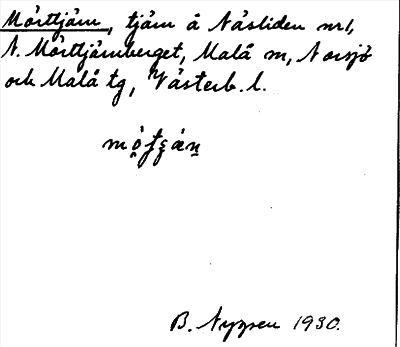 Mörttjärn, tjärn å Näsliden nr 1,
N. Mörttjärnberget, Malå m, Norsjö
och Malå tg, Västerb. l.
B. Nyzseu 1930.